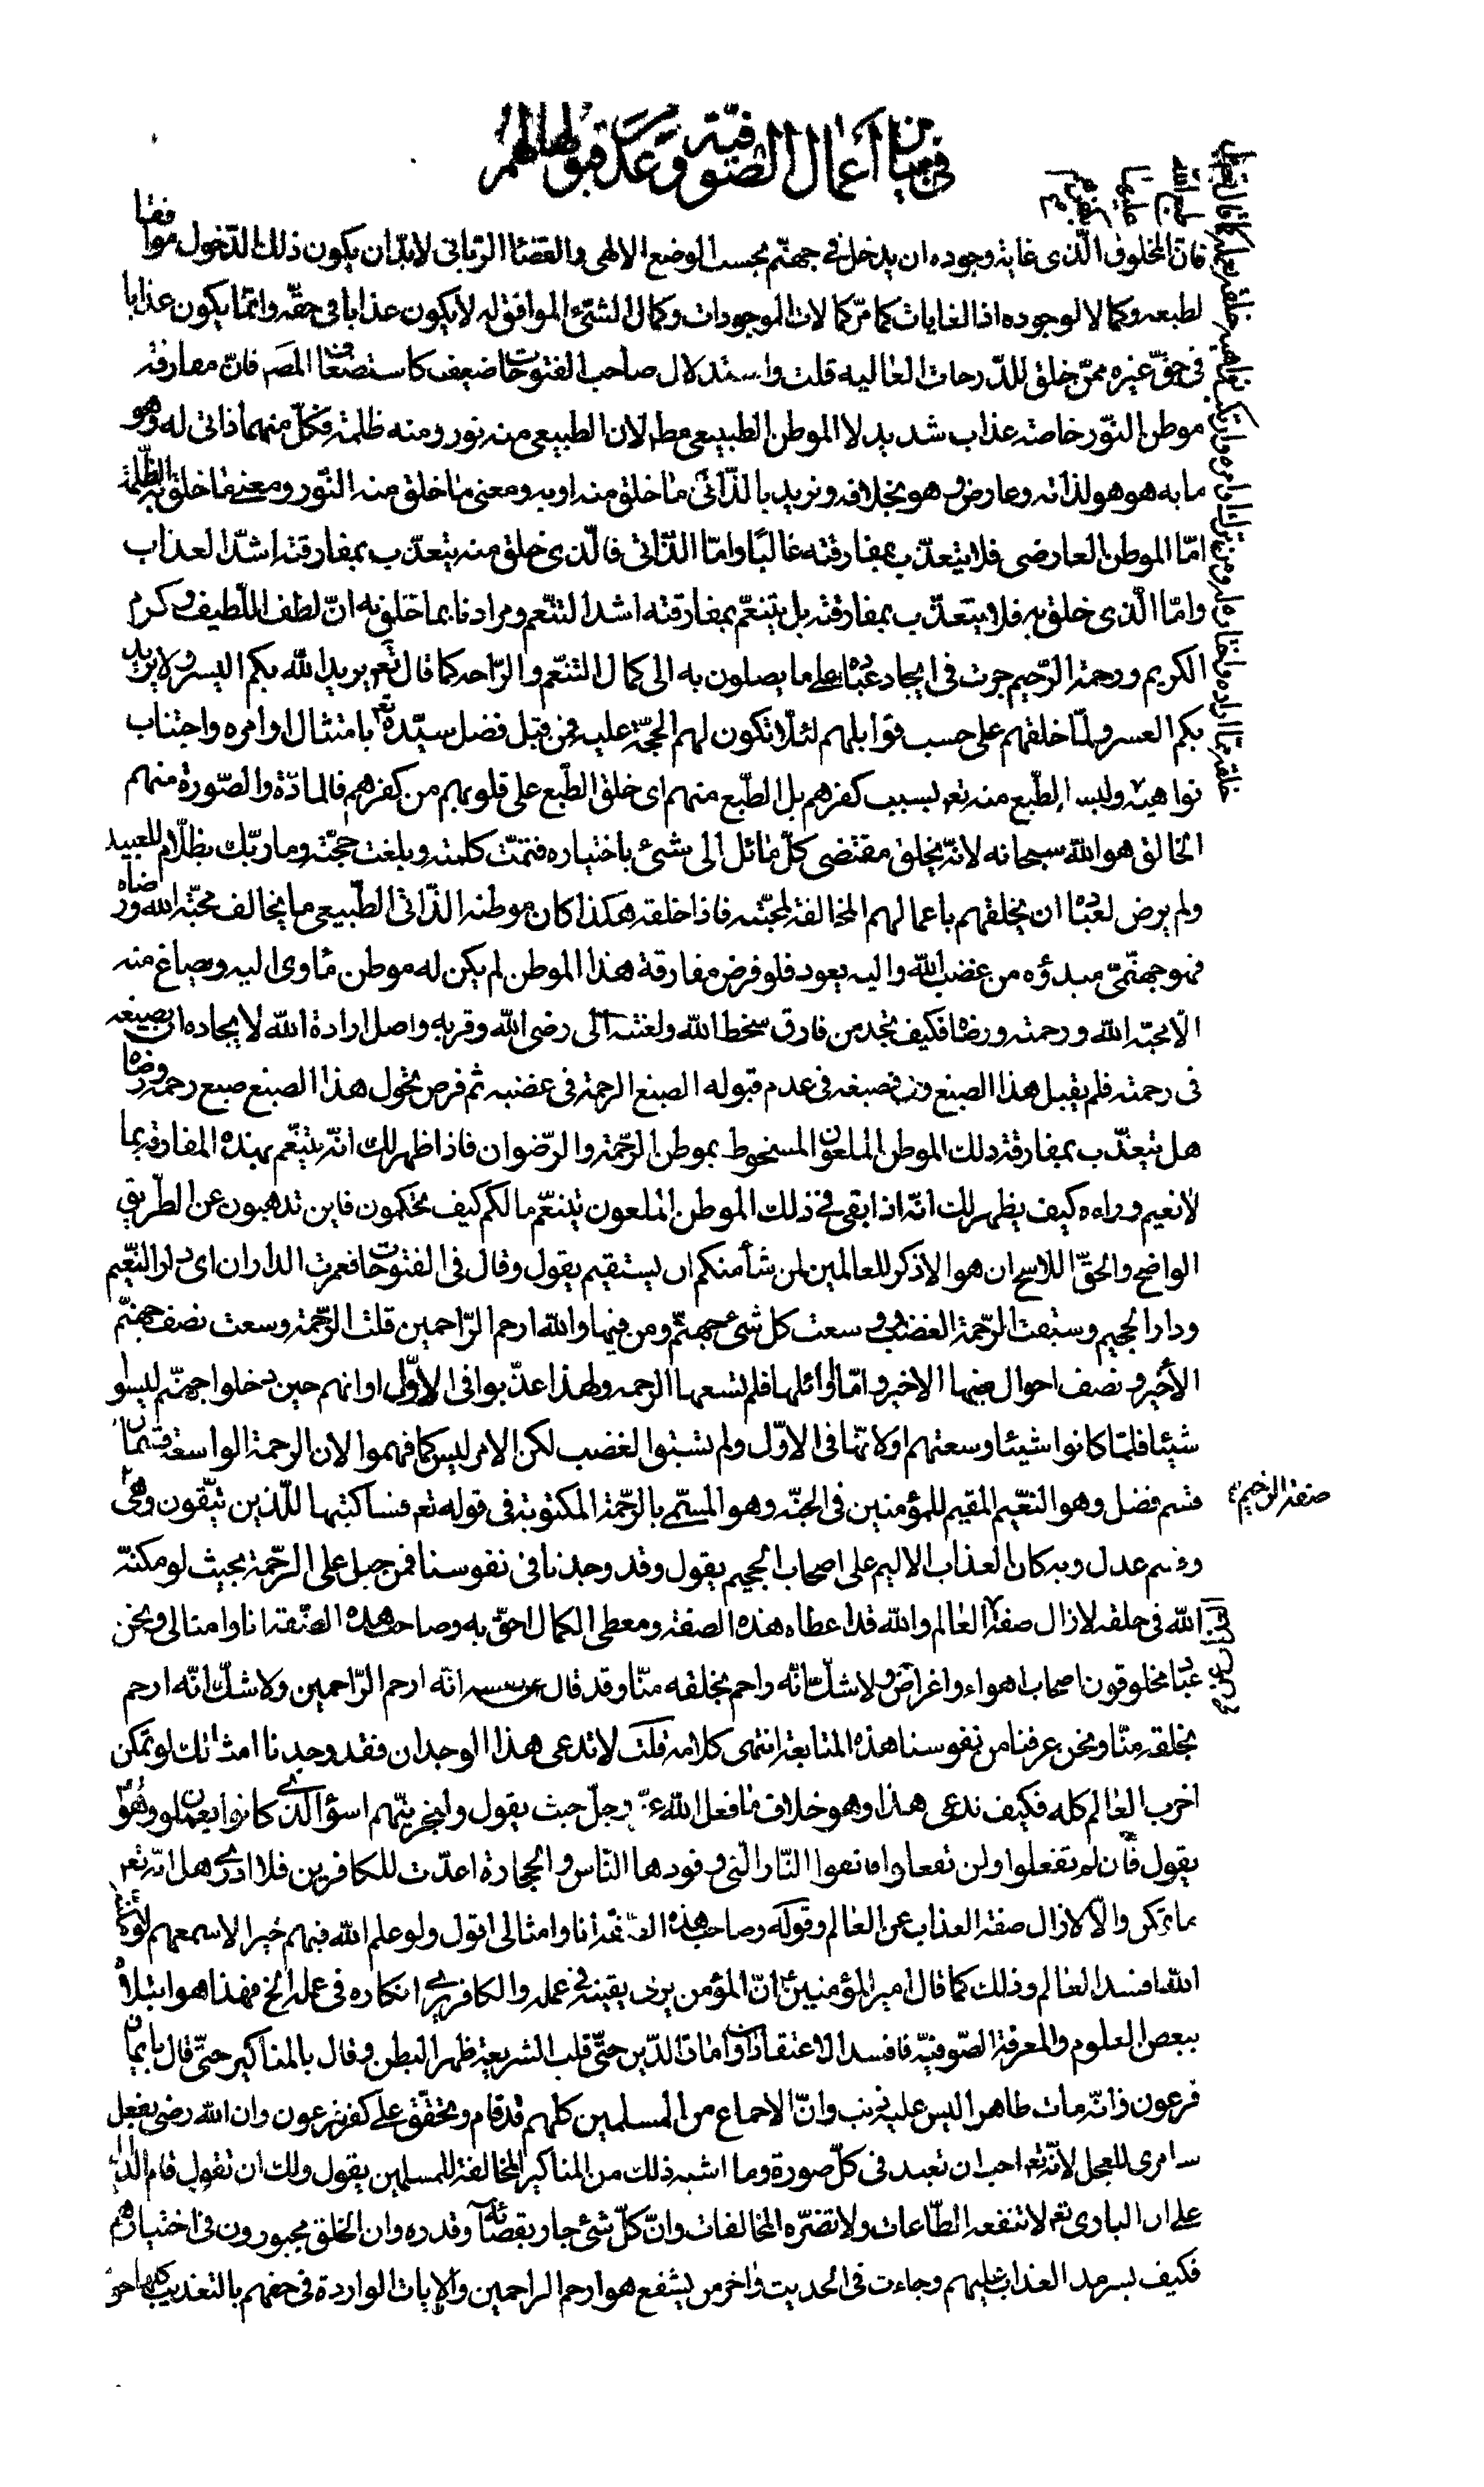 في بيان أعمال الصّوفيّة وعدم قبولها لهم
فانّ المخلوق الّذى غاية وجوده ان يدخل فى جهنّم بحسب الوضع الالهى والقضاء الرّبانى لابدّ ان يكون ذلك الدّخول موافقا
لطبعه وكمالا لوجوده اذ الغايات كما مرّ كمالات الموجودات وكمال الشّئ الموافق له لا يكون عذابا فى حقّه وانّما يكون عذابا
فى حقّ غيره ممّن خلق للدّرجات العاليه قلت واستدلال صاحب الفتوحات ضعيف كاستضعاف المصَ فانّ مفارقة
موطن النّور خاصته عذاب شديد لا الموطن الطبيعى مطم لان الطبيعى منه نور ومنه ظلمة فكلّ منهما ذاتى له وهو
ما به هو هو لذاته وعارض وهو بخلافه ونريد بالذّاتى ما خلق منه او به ومعنى ما خلق منه النّور ومعنى ما خلق به الظّلمة
امّا الموطن العارضى فلا يتعذّب بمفارقته غالبًا وامّا الذّاتى فالّذى خلق منه يتعذّب بمفارقته اشدّ العذاب
وامّا الّذى خلق به فلا يتعذّب بمفارقته بل يتنعّم بمفارقته اشد التنعّم ومرادنا بما خلق به انّ لطف اللّطيف وكرم
الكريم ورحمة الرّحيم جرت فى ايجاد عباده على ما يصلون به الى كمال التنعّم والرّاحه كما قال تعم يريد الله بكم اليسر ولا يريد
بكم العسر ولمّا خلقهم على حسب قوابلهم لئلا تكون لهم الحجّة عليه فمن قبل فضل سيّده تعم بامتثال اوامره واجتناب
نواهيه وليس الطّبع منه تعم بسبب كفرهم بل الطّبع منهم اى خلق الطّبع على قلوبهم من كفرهم فالمادّة والصّورة منهم
الخالق هو الله سبحانه لانّه يخلق مقتضى كلّ مائل الى شئ باختياره فتمّت كلمته وبلغت حجّته وما ربّك بظلّام للعبيد
ولم يرض لعباده ان يخلقهم باعمالهم المخالفة لمحبّته فاذا خلقه هكذا كان موطنه الذّاتى الطّبيعى ما يخالف محبّة الله ورضاه
فهو جهنّمىّ مبدؤه من غضب الله واليه يعود فلو فرض مفارقة هذا الموطن لم يكن له موطن ماوى اليه ويصاغ منه
الّا محبّة الله ورحمته ورضاه فكيف تجد من فارق سخط الله ولعنته الى رضى الله وقربه واصل ارادة الله لايجاده ان يصبغه
فى رحمته فلم يقبل هذا الصبغ فصبغه فى عدم قبوله الصبغ الرحمة فى غضبه ثم فرض تحول هذا الصبغ صبغ رحمته ورضاه
هل يتعذّب بمفارقة ذلك الموطن الملعون المسخوط بموطن الرّحمة والرّضوان فاذا ظهر لك انّه يتنعّم بهذه المفارقة بما
لا نعيم وراءه كيف يظهر لك انّه اذا بقى فى ذلك الموطن الملعون يتنعّم مالكم كيف تحكمون فاين تذهبون عن الطّريق
الواضح والحقّ اللائح ان هو الا ذكر للعالمين لمن شاء منكم ان يستقيم يقول وقال فى الفتوحات فعمرت الداران اى دار النّعيم
ودار الجحيم وسبقت الرّحمة الغضب وسعت كل شئ جهنّم ومن فيها والله ارحم الرّاحمين قلت الرّحمة وسعت نصف جهنّم
الأخير ونصف احوال فيها الاخير وامّا اوائلها فلم تسعها الرحمه ولهذا عذّبوا فى الاوّل او انهم حين دخلوا جهنّم ليسوا
شيئا فلمّا كانوا شيئا وسعتهم اولا نها فى الاوّل ولم تسبق الغضب لكن الامر ليس كما فهموا لان الرحمة الواسعة قسمان
قسم فضل وهو النّعيم المقيم للمؤمنين فى الجنّه وهو المسمّى بالرّحمة المكتوبة فى قوله تعم فساكتبها للّذين يتّقون وهى
صفة الرّحيم
وقسم عدل وبه كان العذاب الاليم على اصحاب الجحيم يقول وقد وجدنا فى نفوسنا فمن جبل على الرّحمة بحيث لو مكنّه
الله فى خلقه لازال صفة العذاب من العالم والله قد اعطاه هذه الصفة ومعطى الكمال احقّ به وصاحب هذه الصّفة انا وامثالى ونحن
عباد مخلوقون اصحاب اهواء واغراض ولا شكّ انّه ارحم بخلقه منّا وقد قال عن نفسه انّه ارحم الرّاحمين ولا شكّ انّه ارحم
بخلقه منّا ونحن عرفنا من نفوسنا هذه المتابعة انتهى كلامه قلت لا تدعى هذا الوجدان فقد وجدنا امثالك لو تمكن
اخرب العالم كله فكيف تدعى هذا وهو خلاف ما فعل الله عزّ وجلّ حيث يقول ولنجزينّهم اسوأ الذى كانوا يعملون وهو
يقول فان لم تفعلوا ولن تفعلوا فاتقوا النّار الّتى وقودها النّاس والحجارة اعدّت للكافرين فلا ادرى هل انّه تعم
ما تمكن والّا لازال صفة العذاب عن العالم وقوله وصاحب هذه الصّفة انا وامثالى اقول ولو علم الله فيهم خيرا لاسمعهم لو مكّنه
الله افسد العالم وذلك كما قال امير المؤمنين ان المؤمن يرى يقينه فى عمله والكافر يرى انكاره فى عمله الخ فهذا هو ابتلاه
ببعض العلوم والمعرفة الصّوفيّة فافسد الاعتقادات وامات الدّين حتّى قلب الشريعة ظهرا لبطن وقال بالمناكير حتّى قال بايمان
فرعون وانّه مات طاهرا ليس عليه ذنب وانّ الاجماع من المسلمين كلهم قد قام وتحقّق على كفر فرعون وان الله رضى بفعل
سامرى للعجل لانّه تعم احب ان تعبد فى كلّ صورة وما اشبه ذلك من المناكير المخالفة للمسلمين يقول ولك ان تقول قام الدليل
على ان البارى تعم لا تنفعه الطّاعات ولا تضرّه المخالفات وانّ كلّ شئ جار بقضائه وقدره وان الخلق مجبورون فى اختيارهم
فكيف يسرمد العذاب عليهم وجاءت فى الحديث واخر من يشفع هو ارحم الراحمين والايات الواردة فى حقهم بالتعذيب كلها حق